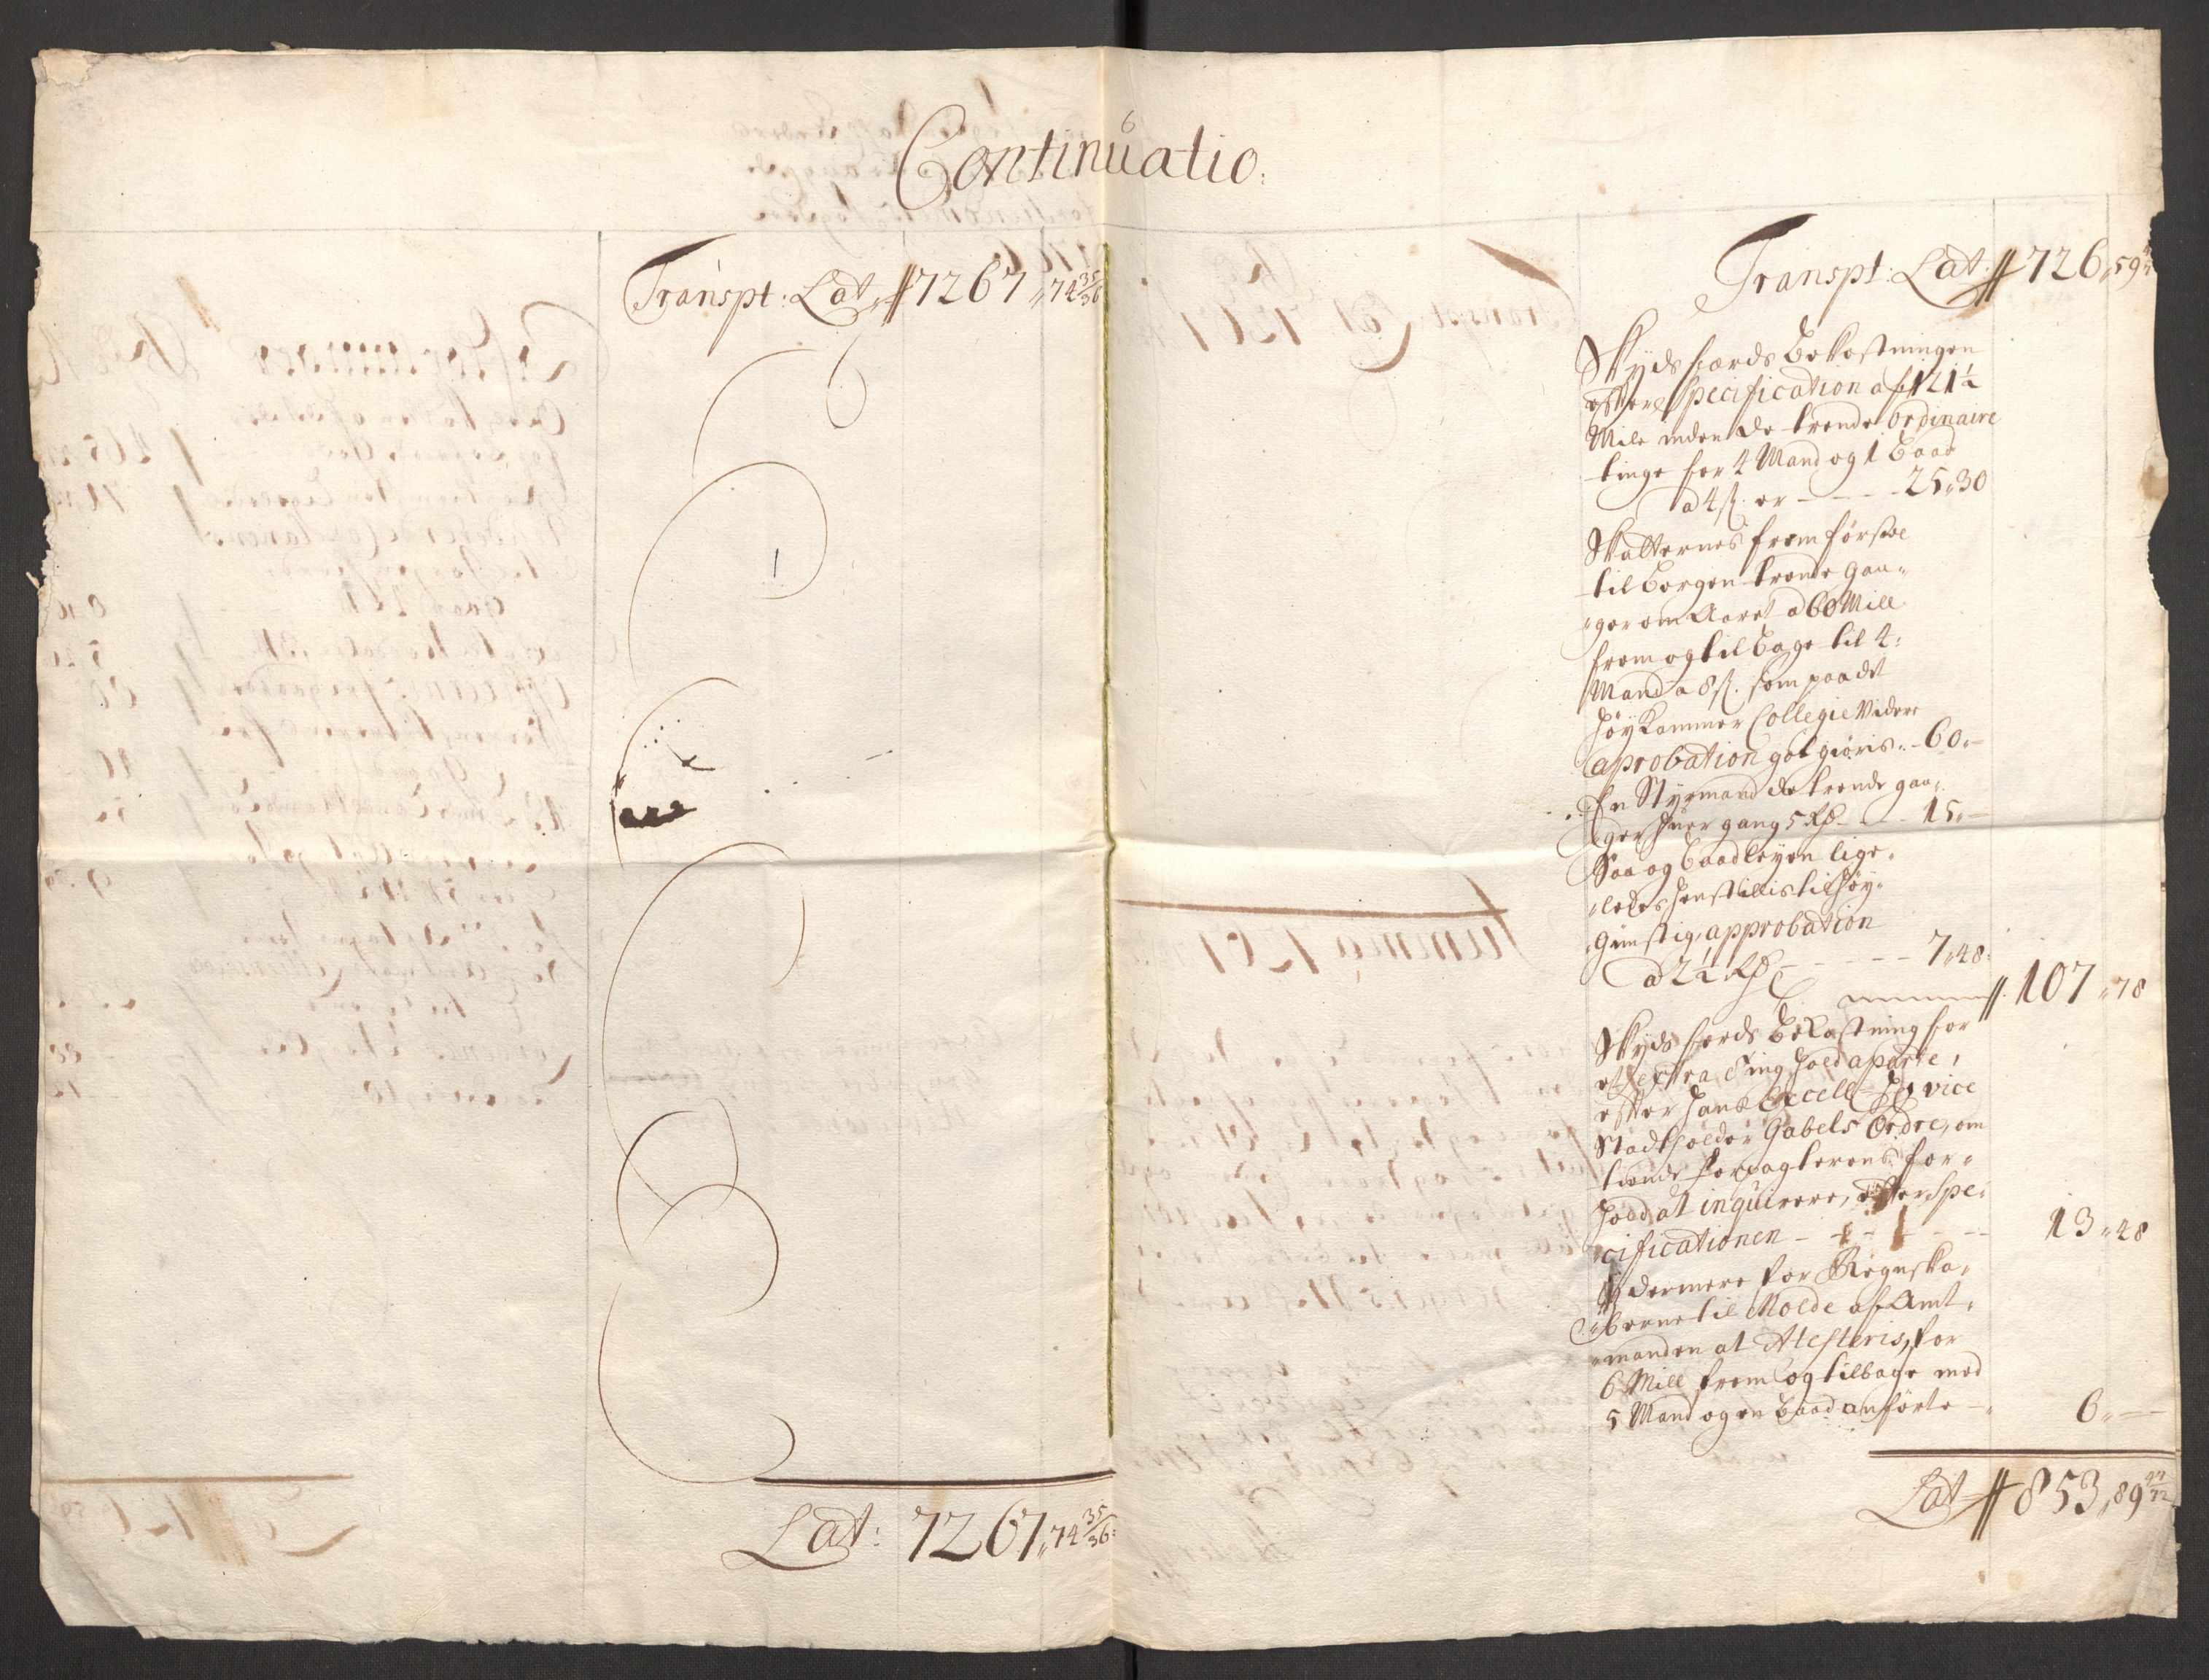 6
Continuatio:
Transpt: Lat. 7267„74 35/36
Lat: 7267„74 35/36:
Transpt: Lat: 726„59
Skydsfærds Bekostningen
efter Specification af 121½
Mile inden de trende ordinaire
tinge for 4 Mand og 1 Baad
a 4 ß. er - - - - 25„30
Skatternes fremførsel
til Bergen trende gan„
„ger om Aaret a 60 Mill
frem og tilbage til 4:
Mand a 8 ß. som paa dit
Høy Kammer Collegie Videre
aprobation got giøris.. 60„-
En Styrmand de trende gan„
ger huer gang 5 Rd - - - 15„-
Saa og Baadleyen lige„
„ledes henstillis til Høy„
gunstig approbation
a 2½ Rd - - - - - 7„48:
107„78
Skydsferds Bekostning for
et extra Ting hold aparte,
efter hans Excell: Hr vice
Stadtholder Gabels Ordre, om
tiende forpagterens for„
hold at inquirere, efter Spe„
cificationen - - - - - 13„48
Ydermere for Regnska„
„berne til Molde af Amt„
„manden at Atesteris, for
6 Mill frem og tilbage med
5 Mand og en Baad anførte - 6„-
Lat 853„89 47/72